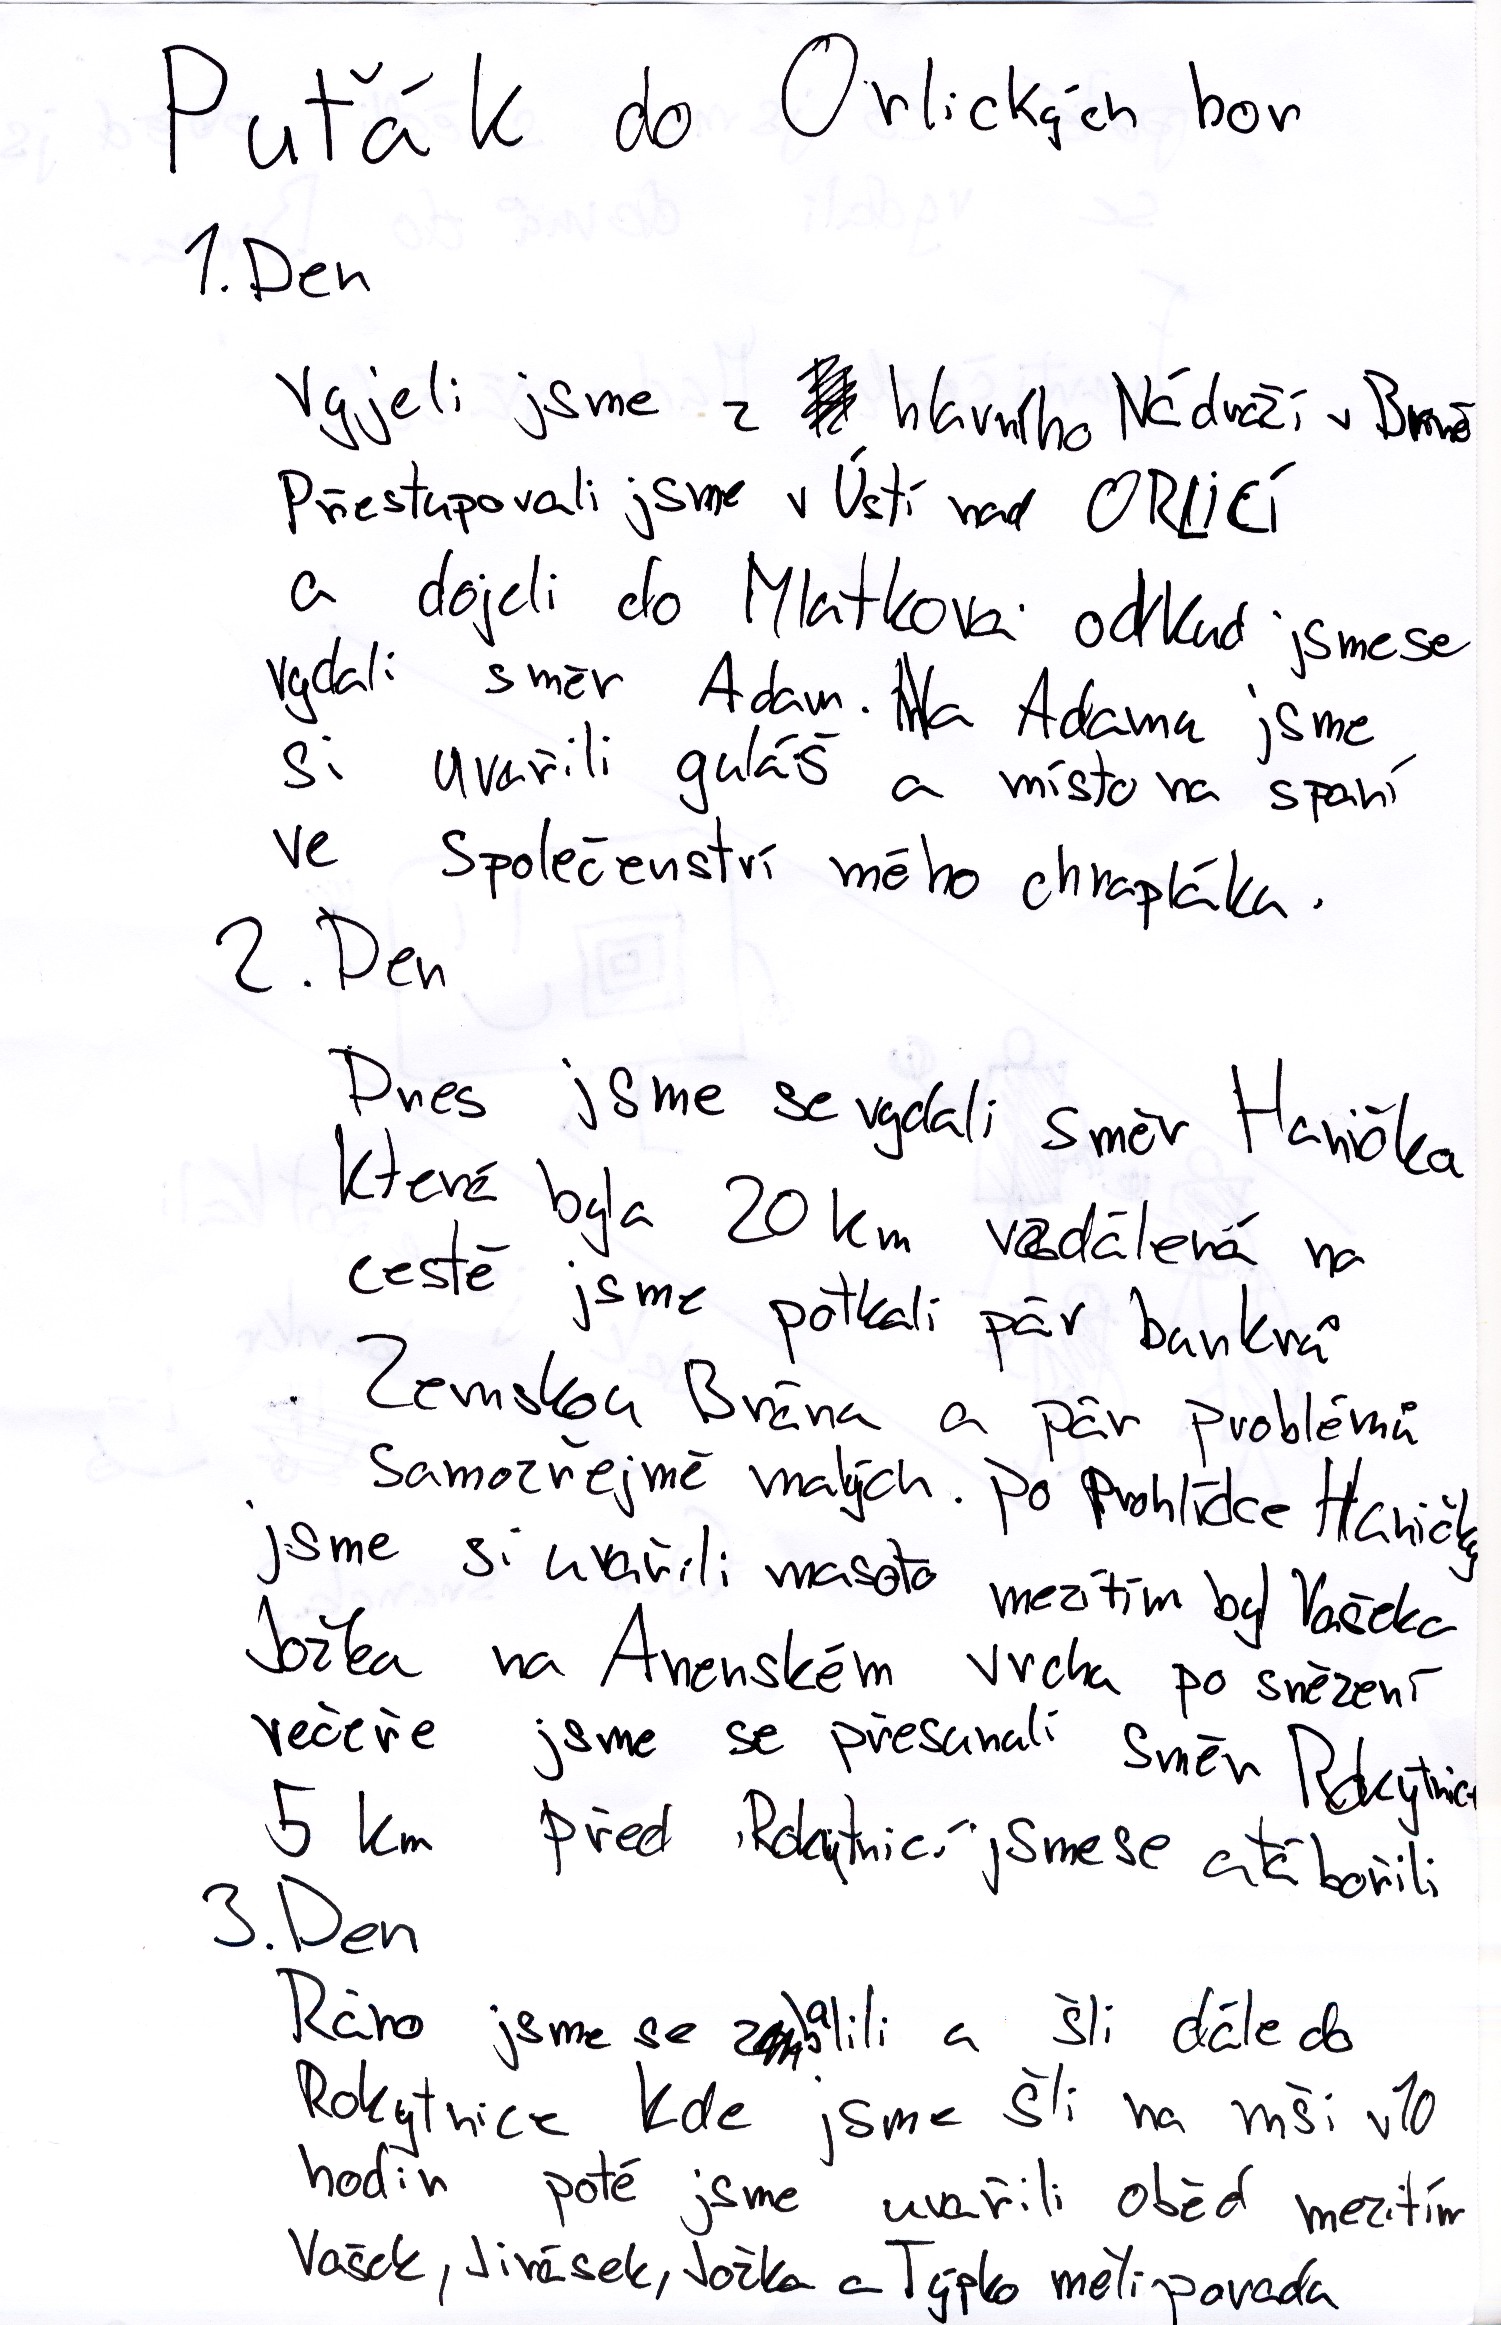 Puťák do Orlických hor
1. Den
Vyjeli jsme z hlavního Nádraží v Brně
Přestupovali jsme v Ústí nad ORLICÍ
a dojeli do Mlatkova odkud jsme se
vydali směr Adam. Na Adamu jsme
si uvařili guláš a místo na spaní
ve společenství mého chraplák­a.
2. Den
Dnes jsme se vydali směr Hanička
která byla 20 km vzdálená na
cestě jsme potkali pár bunkrů
Zemskou Bránu a pár problémů
samozřejmě malých. po Prohlídce Haničky
jsme si uvařili masoto mezitím byl Vašek a
Jožka na Anenském vrchu po snězení
večeře jsme se přesunuli směr Rokytnice
5 km před Rokytnicí jsme se utábořili
3. Den
Ráno jsme se zabalili a šli dále do
Rokytnice kde jsme šli na mši v 10
hodin poté jsme uvařili oběd mezitím
Vašek, Jirásek, Jožka a Týpko měli poradu